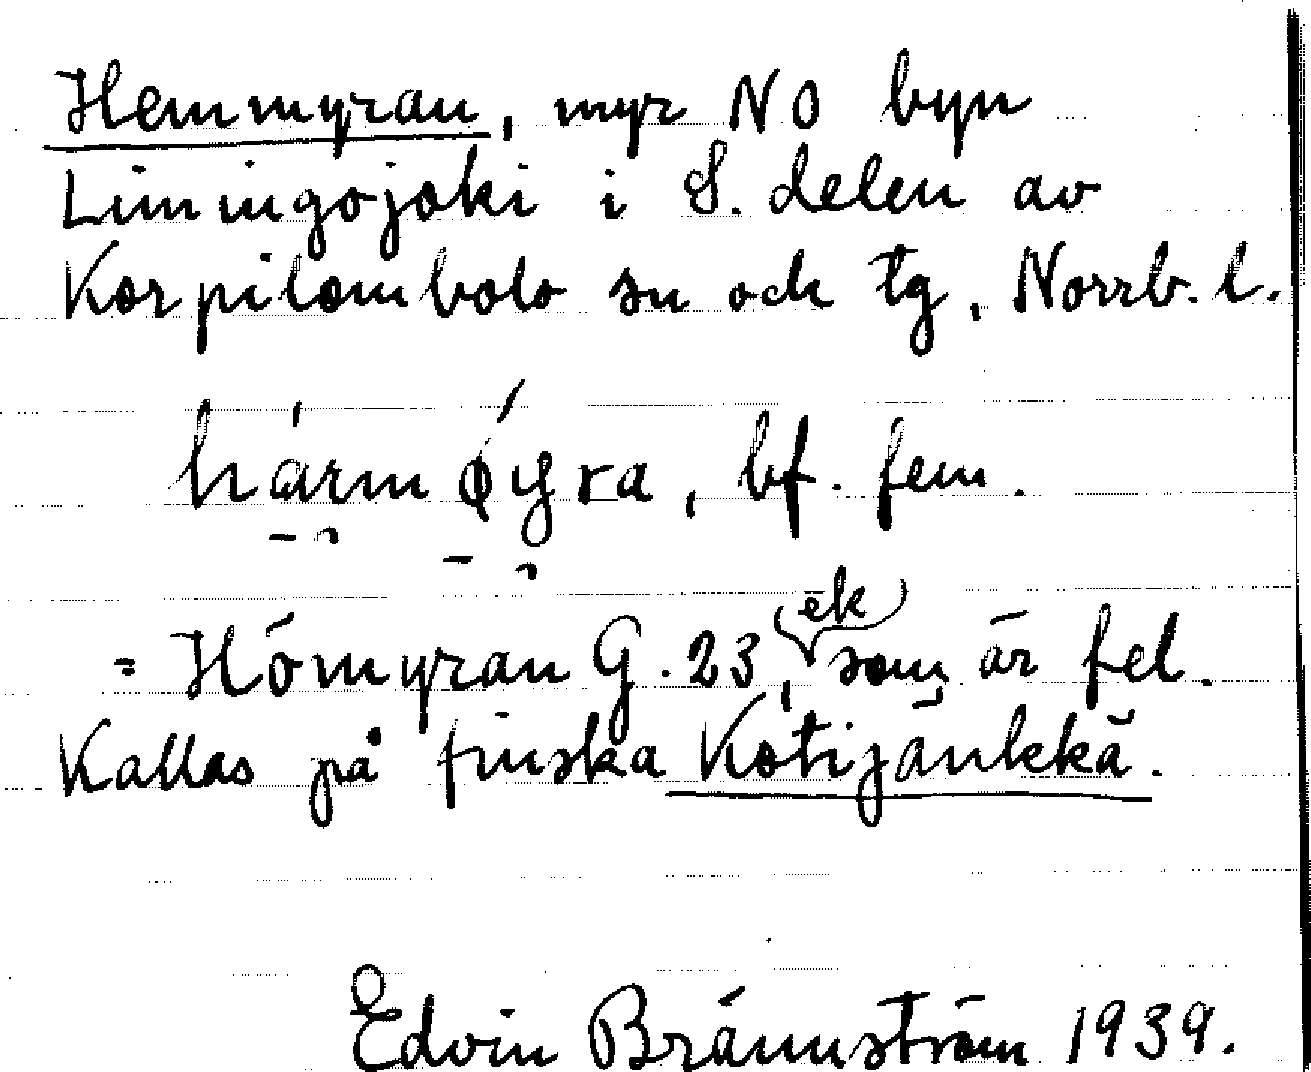 Hemmyran, myr NO byn
Limingojoki i S. delen av
Korpilombolo sn och tg, Norrb. l.
bf. fem.
= Hömyran G. 23 (ek), som är fel.
Kallas på finska Kotijänkkä.
Edvin Brännström 1939.